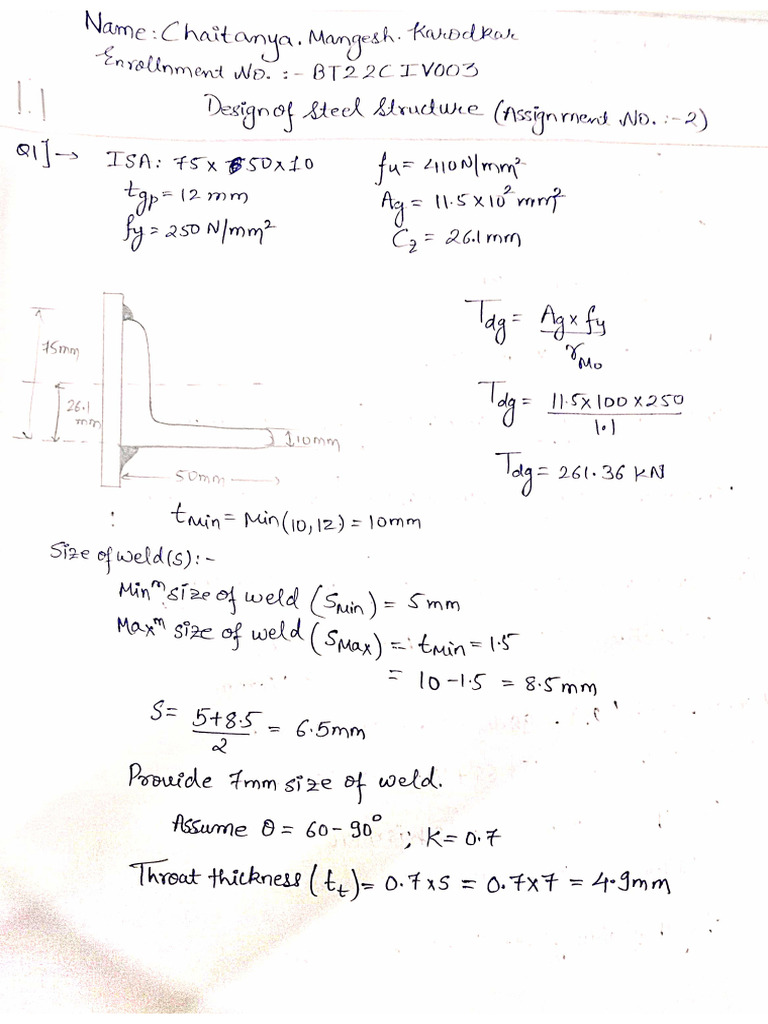 Name: Chaitanya. Mangesh. Karodkar
Enrollnment No. :- BT22CIV003
1.1
Design of Steel Structure (Assignment No. :-2)
Q1] → ISA: 75 x 50 x 10
tgp = 12 mm
fy = 250 N/mm²
fu = 410 N/mm²
Ag = 11.5 x 10² mm²
Cz = 26.1 mm
75mm
26.1 mm
50mm
10mm
Tdg = Ag x fy / γM0
Tdg = 11.5 x 100 x 250 / 1.1
Tdg = 261.36 KN
tMin = Min (10, 12) = 10mm
Size of weld (S) :-
Minᵐ size of weld (SMin) = 5 mm
Maxᵐ size of weld (SMax) = tMin = 1.5
= 10 - 1.5 = 8.5 mm
S = 5+8.5 / 2 = 6.5mm
Provide 7mm size of weld.
Assume θ = 60 - 90° ; K = 0.7
Throat thickness (tt) = 0.7 x S = 0.7 x 7 = 4.9mm